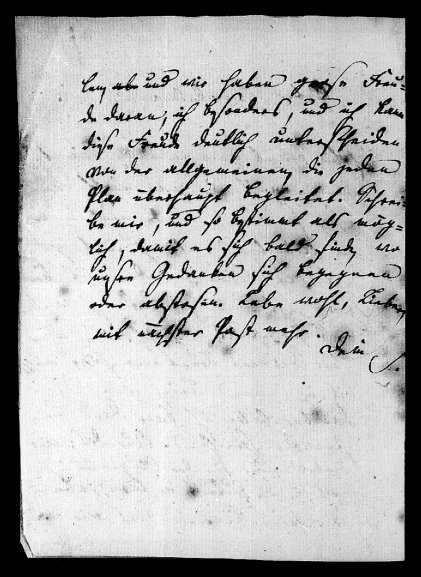 len, ab und wir haben grosse Freu-
de daran, ich besonders, und ich kann
diese Freude deutlich unterscheiden
von der allgemeinen, die jeden
Plan überhaupt begleitet. Schrei-
be mir, und so bestimmt als mög-
lich, damit es sich bald findet, wo
unsre Gedanken sich begegnen
oder abstossen. Lebe wohl, Lieber,
mit nächster Post mehr.
Dein S.